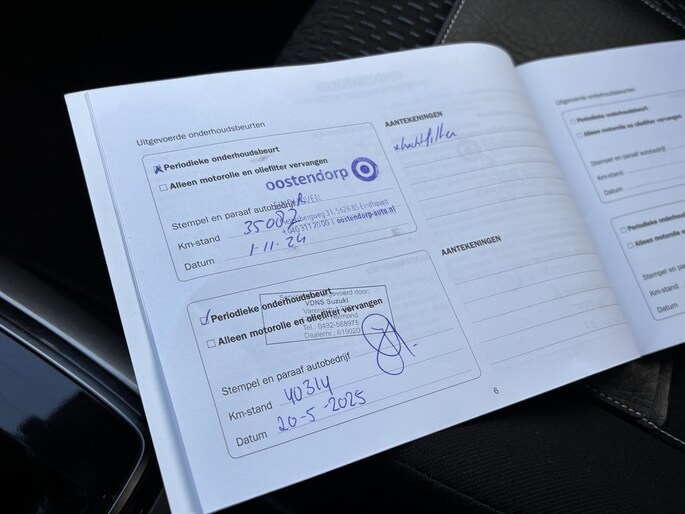 Uitgevoerde onderhoudsbeurten
Periodieke onderhoudsbeurt
Alleen motorolie en oliefilter vervangen
oostendorp
EINDHOVEN
31, 5628 BS Eindhoven
+040 311 20 00 | oostendorp-auto.nl
Stempel en paraaf autobedrijf
Km-stand 35082
Datum 1-11-24
AANTEKENINGEN
Periodieke onderhoudsbeurt
Alleen motorolie en oliefilter vervangen
door:
VDNS Suzuki
Tel.: 0492-588975
Dealernr.: 619020
Stempel en paraaf autobedrijf
Km-stand 40314
Datum 20-5-2025
AANTEKENINGEN
6
Uitgevoerde onderhoudsbeurten
Periodieke onderhoudsbeurt
Alleen motorolie en oliefilter
Stempel en paraaf autobedrijf
Km-stand
Datum
Periodieke onderhoudsbeurt
Alleen motorolie en
Stempel en paraaf
Km-stand
Datum